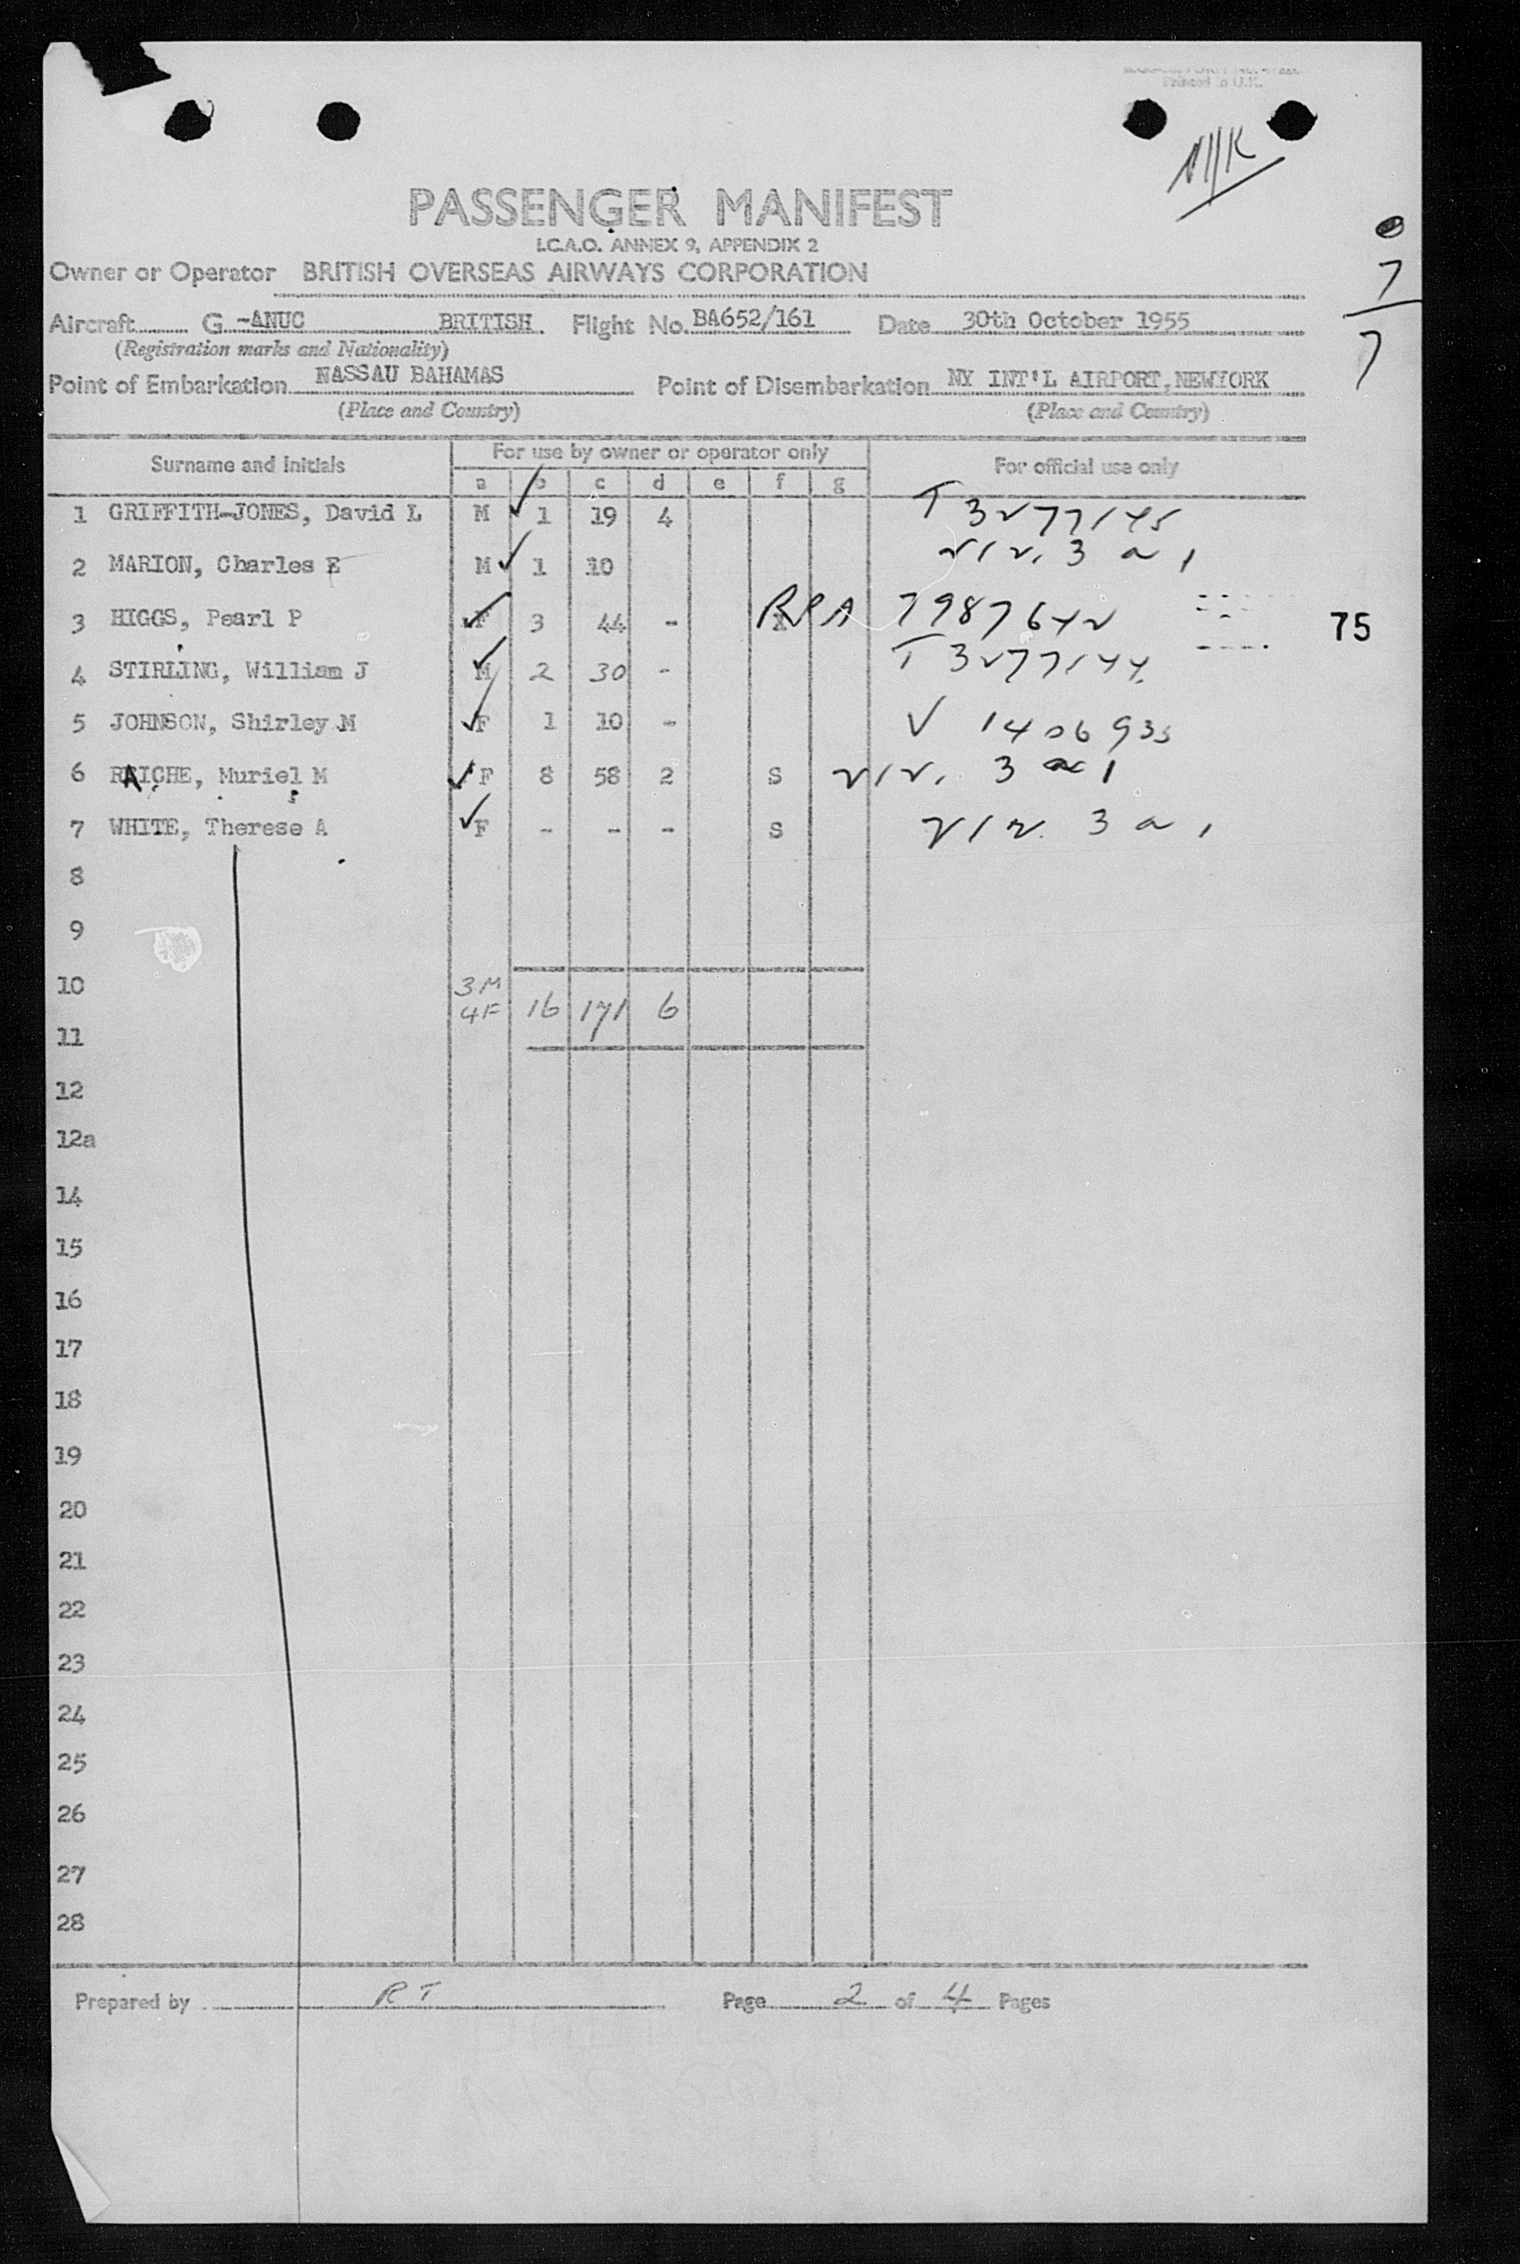 Printed in U.K.
PASSENGER MANIFEST
I.C.A.O. ANNEX 9, APPENDIX 2
Owner or Operator BRITISH OVERSEAS AIRWAYS CORPORATION
7
Aircraft G -ANUC BRITISH Flight No. BA652/161 Date 30th October 1955
7
(Registration marks and Nationality)
Point of Embarkation NASSAU BAHAMAS Point of Disembarkation NY INT'L AIRPORT, NEWYORK
(Place and Country) (Place and Country)
Surname and Initials For use by owner or operator only For official use only
a b c d e f g
1 GRIFFITH-JONES, David L M 1 19 4 T 3277145
2 MARION, Charles E M 1 10
3 HIGGS, Pearl P F 3 44 - 7987642
75
4 STIRLING, William J M 2 30 - T 3277144
5 JOHNSON, Shirley M F 1 10 - V 1406935
6 RAICHE, Muriel M F 8 58 2 S
7 WHITE, Therese A F - - - S
8
9
10 3M
4F 16 171 6
11
12
12a
14
15
16
17
18
19
20
21
22
23
24
25
26
27
28
Prepared by RT Page 2 of 4 Pages